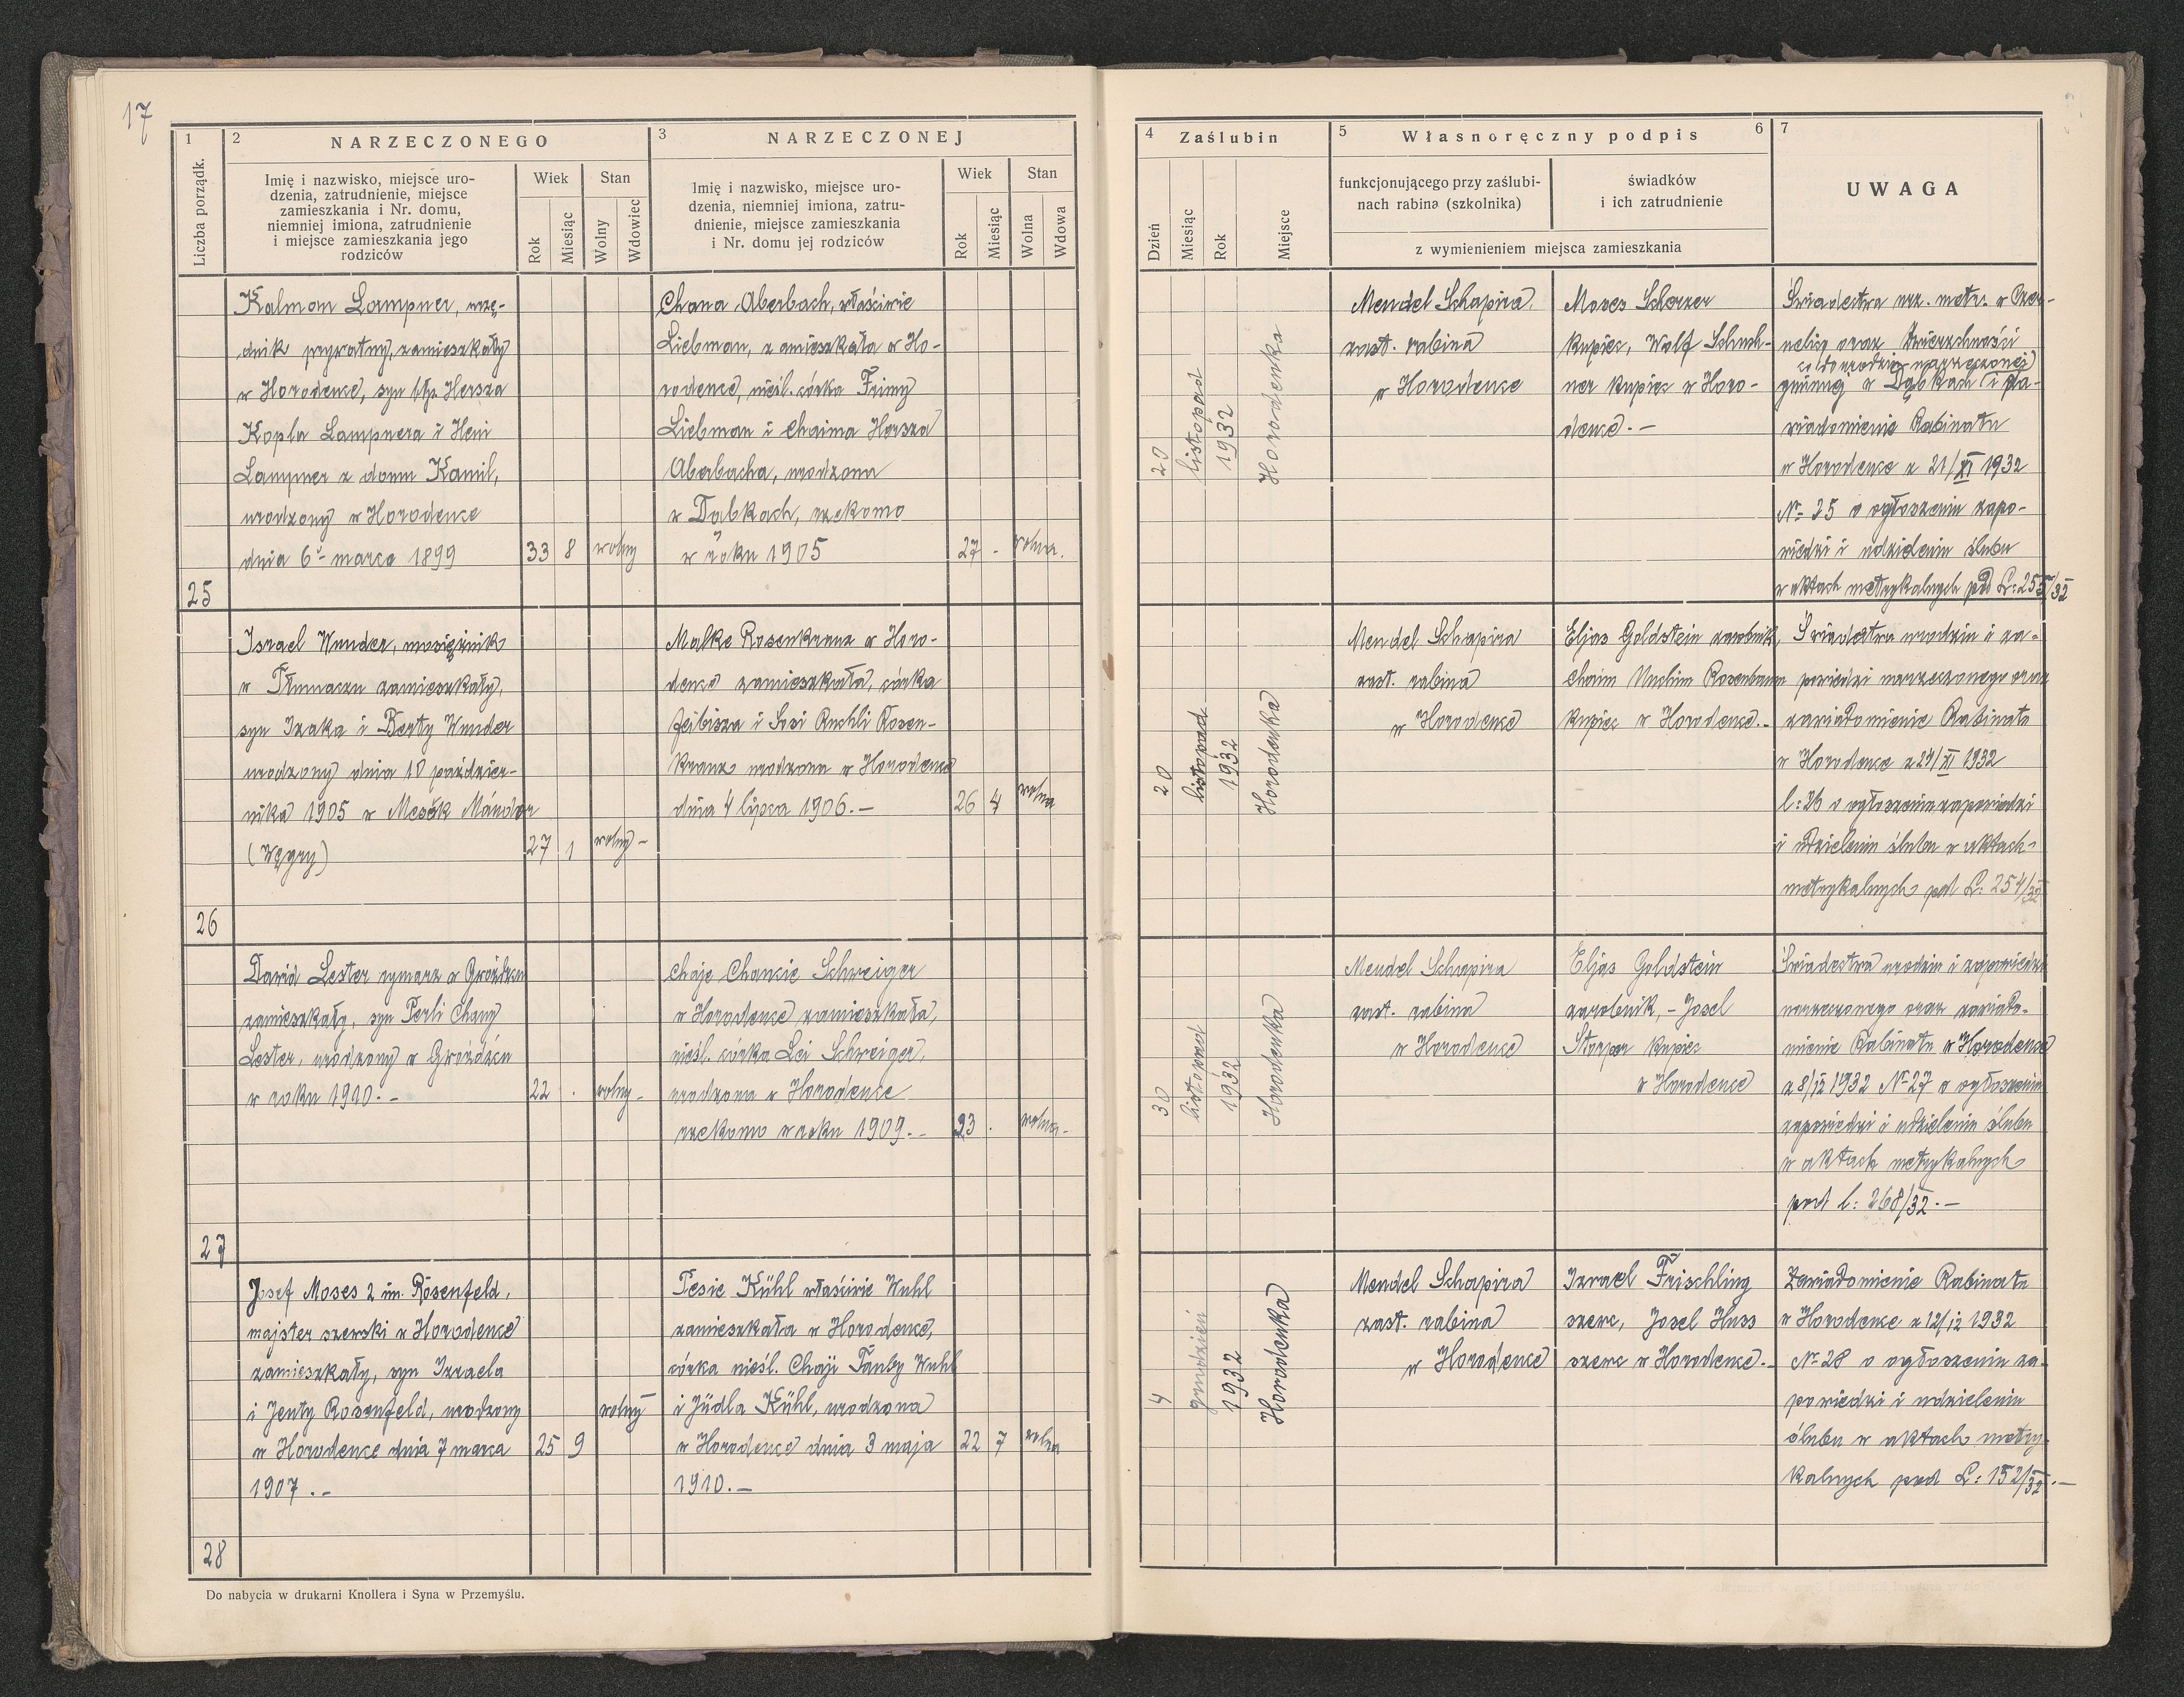 17
1
2
NARZECZONEGO
3
NARZECZONEJ
Liczba porządk.
Imię i nazwisko, miejsce uro-
dzenia, zatrudnienie, miejsce
zamieszkania i Nr. domu,
niemniej imiona, zatrudnienie
i miejsce zamieszkania jego
rodziców
Wiek
Stan
Rok
Miesiąc
Wolny
Wdowiec
Imię i nazwisko, miejsce uro-
dzenia, niemniej imiona, zatru-
dnienie, miejsce zamieszkania
i Nr. domu jej rodziców
Wiek
Stan
Rok
Miesiąc
Wolna
Wdowa
4
Zaślubin
5
Własnoręczny podpis
6
7
Dzień
Miesiąc
Rok
Miejsce
funkcjonującego przy zaślubi-
nach rabina (szkolnika)
świadków
i ich zatrudnienie
z wymienieniem miejsca zamieszkania
UWAGA
25
Kalman Lampner, urzę-
dnik prywatny, zamieszkały
w Horodence, syn Hersza
Kopla Lampnera i Heni
Lampner z domu Kamil,
urodzony w Horodence
dnia 6 marca 1899
33 8 wolny
Chana Aberbach, właściwie
Liebman, zamieszkała w Ho-
rodence, nieśl. córka Frimy
Liebman i Chaima Hersza
Aberbacha, urodzona
w Dąbkach, rzekomo
w roku 1905
27 - wolna.
20
listopad
1932
Horodenka
Mendel Schapira
zast. rabina
w Horodence
Moses Scherzer
kupiec, Wolf Schuch-
ner kupiec w Horo-
dence. -
Świadectwa urz. metr. w Czer-
nelicy oraz Zwierzchności
co do urodzin narzeczonej
gminnej w Dąbkach i za-
wiadomienie Rabinatu
w Horodence z 21/XI 1932
No 25 o ogłoszeniu zapo-
wiedzi i udzieleniu ślubu
w aktach metrykalnych pod L: 255/32
26
Israel Wunder, mosiężnik
w Tłumaczu zamieszkały,
syn Izaka i Berty Wunder
urodzony dnia 10 paździer-
nika 1905 w Mesák Mándor
(Węgry)
27 1 wolny -
Malke Rosenkranz w Horo-
dence zamieszkała, córka
Feibisza i Sosi Ruchli Rosen-
kranz urodzona w Horodence
dnia 4 lipca 1906. -
26 4 wolna
20
listopad
1932
Horodenka
Mendel Schapira
zast. rabina
w Horodence
Eljas Goldstein zarobnik,
Chaim Nuchim Rosenbaum
kupiec w Horodence. -
Świadectwa urodzin i za-
powiedzi narzeczonego oraz
zawiadomienie Rabinatu
w Horodence z 24/XI 1932
l: 26 o ogłoszeniu zapowiedzi
i udzieleniu ślubu w aktach
metrykalnych pod L: 254/32
27
Dawid Lester rymarz w Gwoźdźcu
zamieszkały, syn Perli Chany
Lester, urodzony w Gwoźdźcu
w roku 1910. -
22 . wolny -
Chaje Chancie Schweiger
w Horodence zamieszkała,
nieśl. córka Lei Schweiger,
urodzona w Horodence
rzekomo w roku 1909. -
23 . wolna -
30
listopad
1932
Horodenka
Mendel Schapira
zast. rabina
w Horodence
Eljas Goldstein
zarobnik, - Josel
Storper kupiec
w Horodence
Świadectwa urodzin i zapowiedzi
narzeczonego oraz zawiado-
mienie Rabinatu w Horodence
z 8/12 1932 No 27 o ogłoszeniu
zapowiedzi i udzieleniu ślubu
w aktach metrykalnych
pod l: 268/32. -
28
Josef Moses 2 im. Rosenfeld,
majster szewski w Horodence
zamieszkały, syn Izraela
i Jenty Rosenfeld, urodzony
w Horodence dnia 7 marca
1907. -
25 9 wolny
Pesie Kühl właściwie Wuhl
zamieszkała w Horodence,
córka nieśl. Chaji Tauby Wuhl
i Jüdla Kühl, urodzona
w Horodence dnia 3 maja
1910. -
22 7 wolna
4
grudzień
1932
Horodenka
Mendel Schapira
zast. rabina
w Horodence
Izrael Frischling
szewc, Josel Huss
szewc w Horodence. -
Zawiadomienie Rabinatu
w Horodence z 12/12 1932
No 28 o ogłoszeniu za-
powiedzi i udzieleniu
ślubu w aktach metry-
kalnych pod L: 152/32. -
Do nabycia w drukarni Knollera i Syna w Przemyślu.